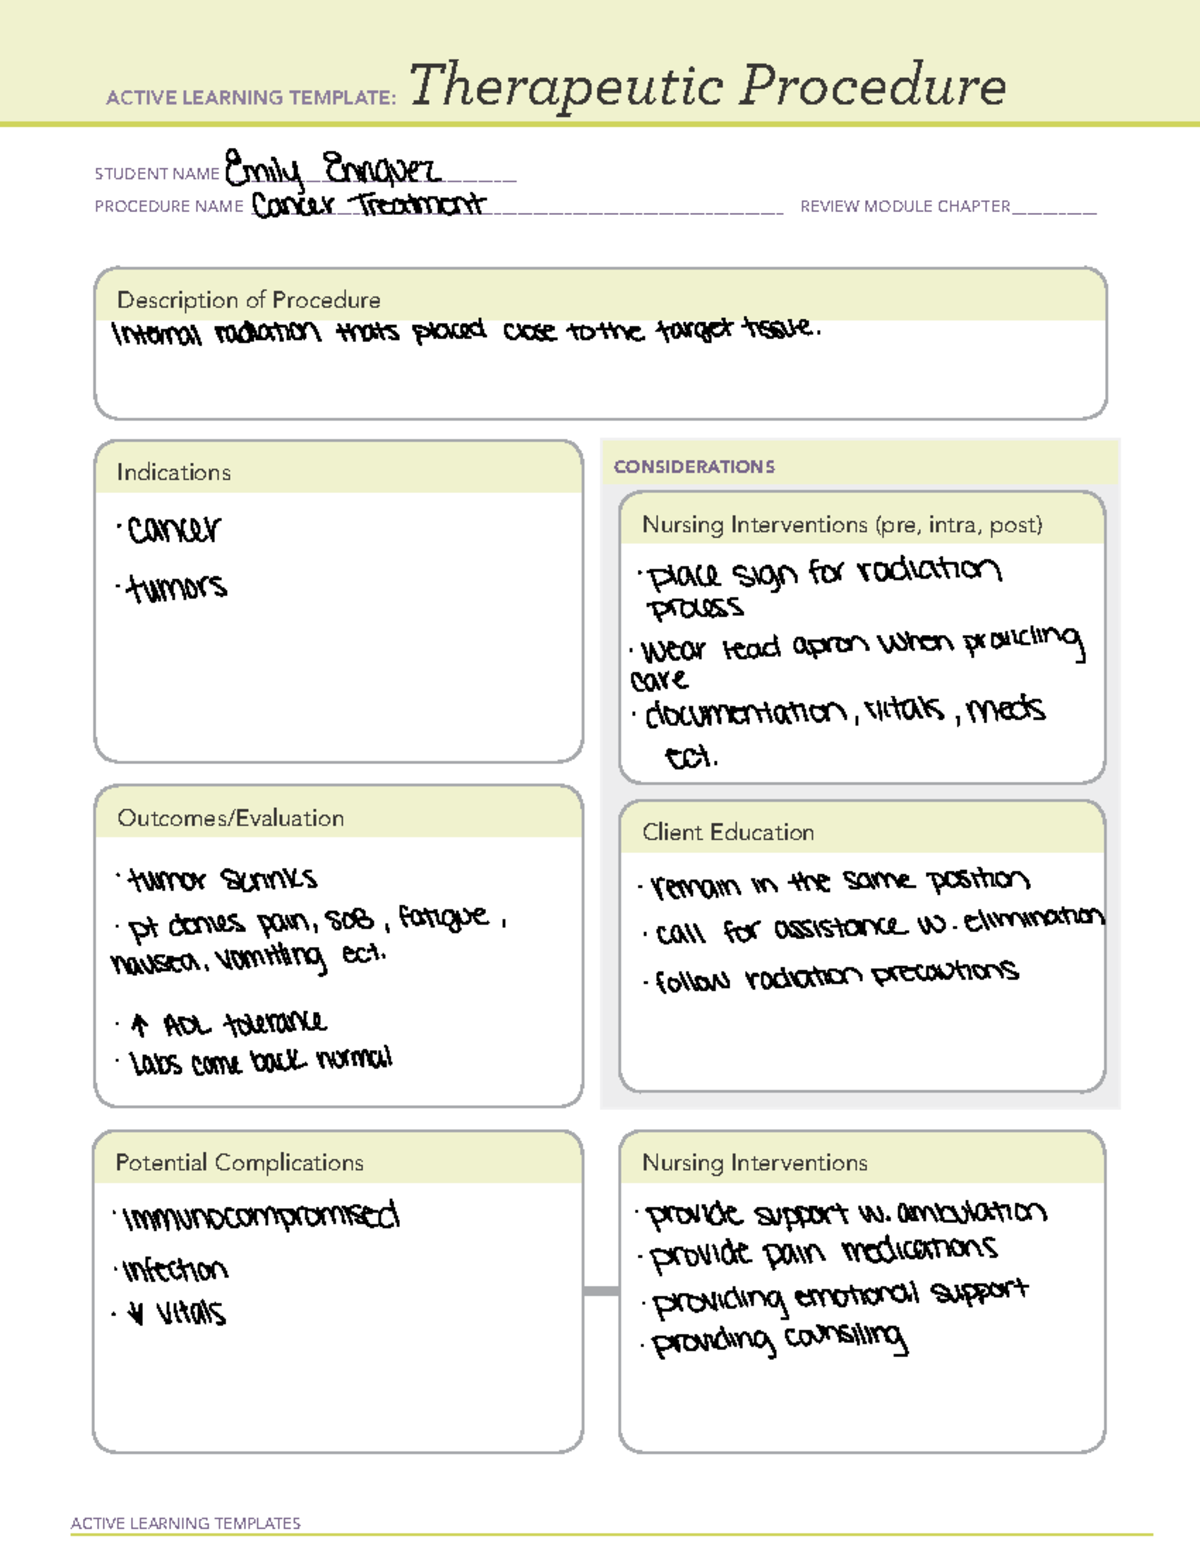 ACTIVE LEARNING TEMPLATE: Therapeutic Procedure
STUDENT NAME Emily Enriquez
PROCEDURE NAME Cancer Treatment REVIEW MODULE CHAPTER
Description of Procedure
Internal radiation thats placed close to the target tissue.
Indications
· cancer
· tumors
CONSIDERATIONS
Nursing Interventions (pre, intra, post)
· place sign for radiation
process
· wear lead apron when providing
care
· documentation, vitals, meds
ect.
Outcomes/Evaluation
· tumor shrinks
· pt denies pain, SOB, fatigue,
nausea, vomitting ect.
· ↑ ADL tolerance
· Labs come back normal
Client Education
· remain in the same position
· call for assistance w. elimination
· follow radiation precautions
Potential Complications
· immunocompromised
· infection
· ↓ vitals
Nursing Interventions
· provide support w. ambulation
· provide pain medications
· providing emotional support
· providing counsiling
ACTIVE LEARNING TEMPLATES